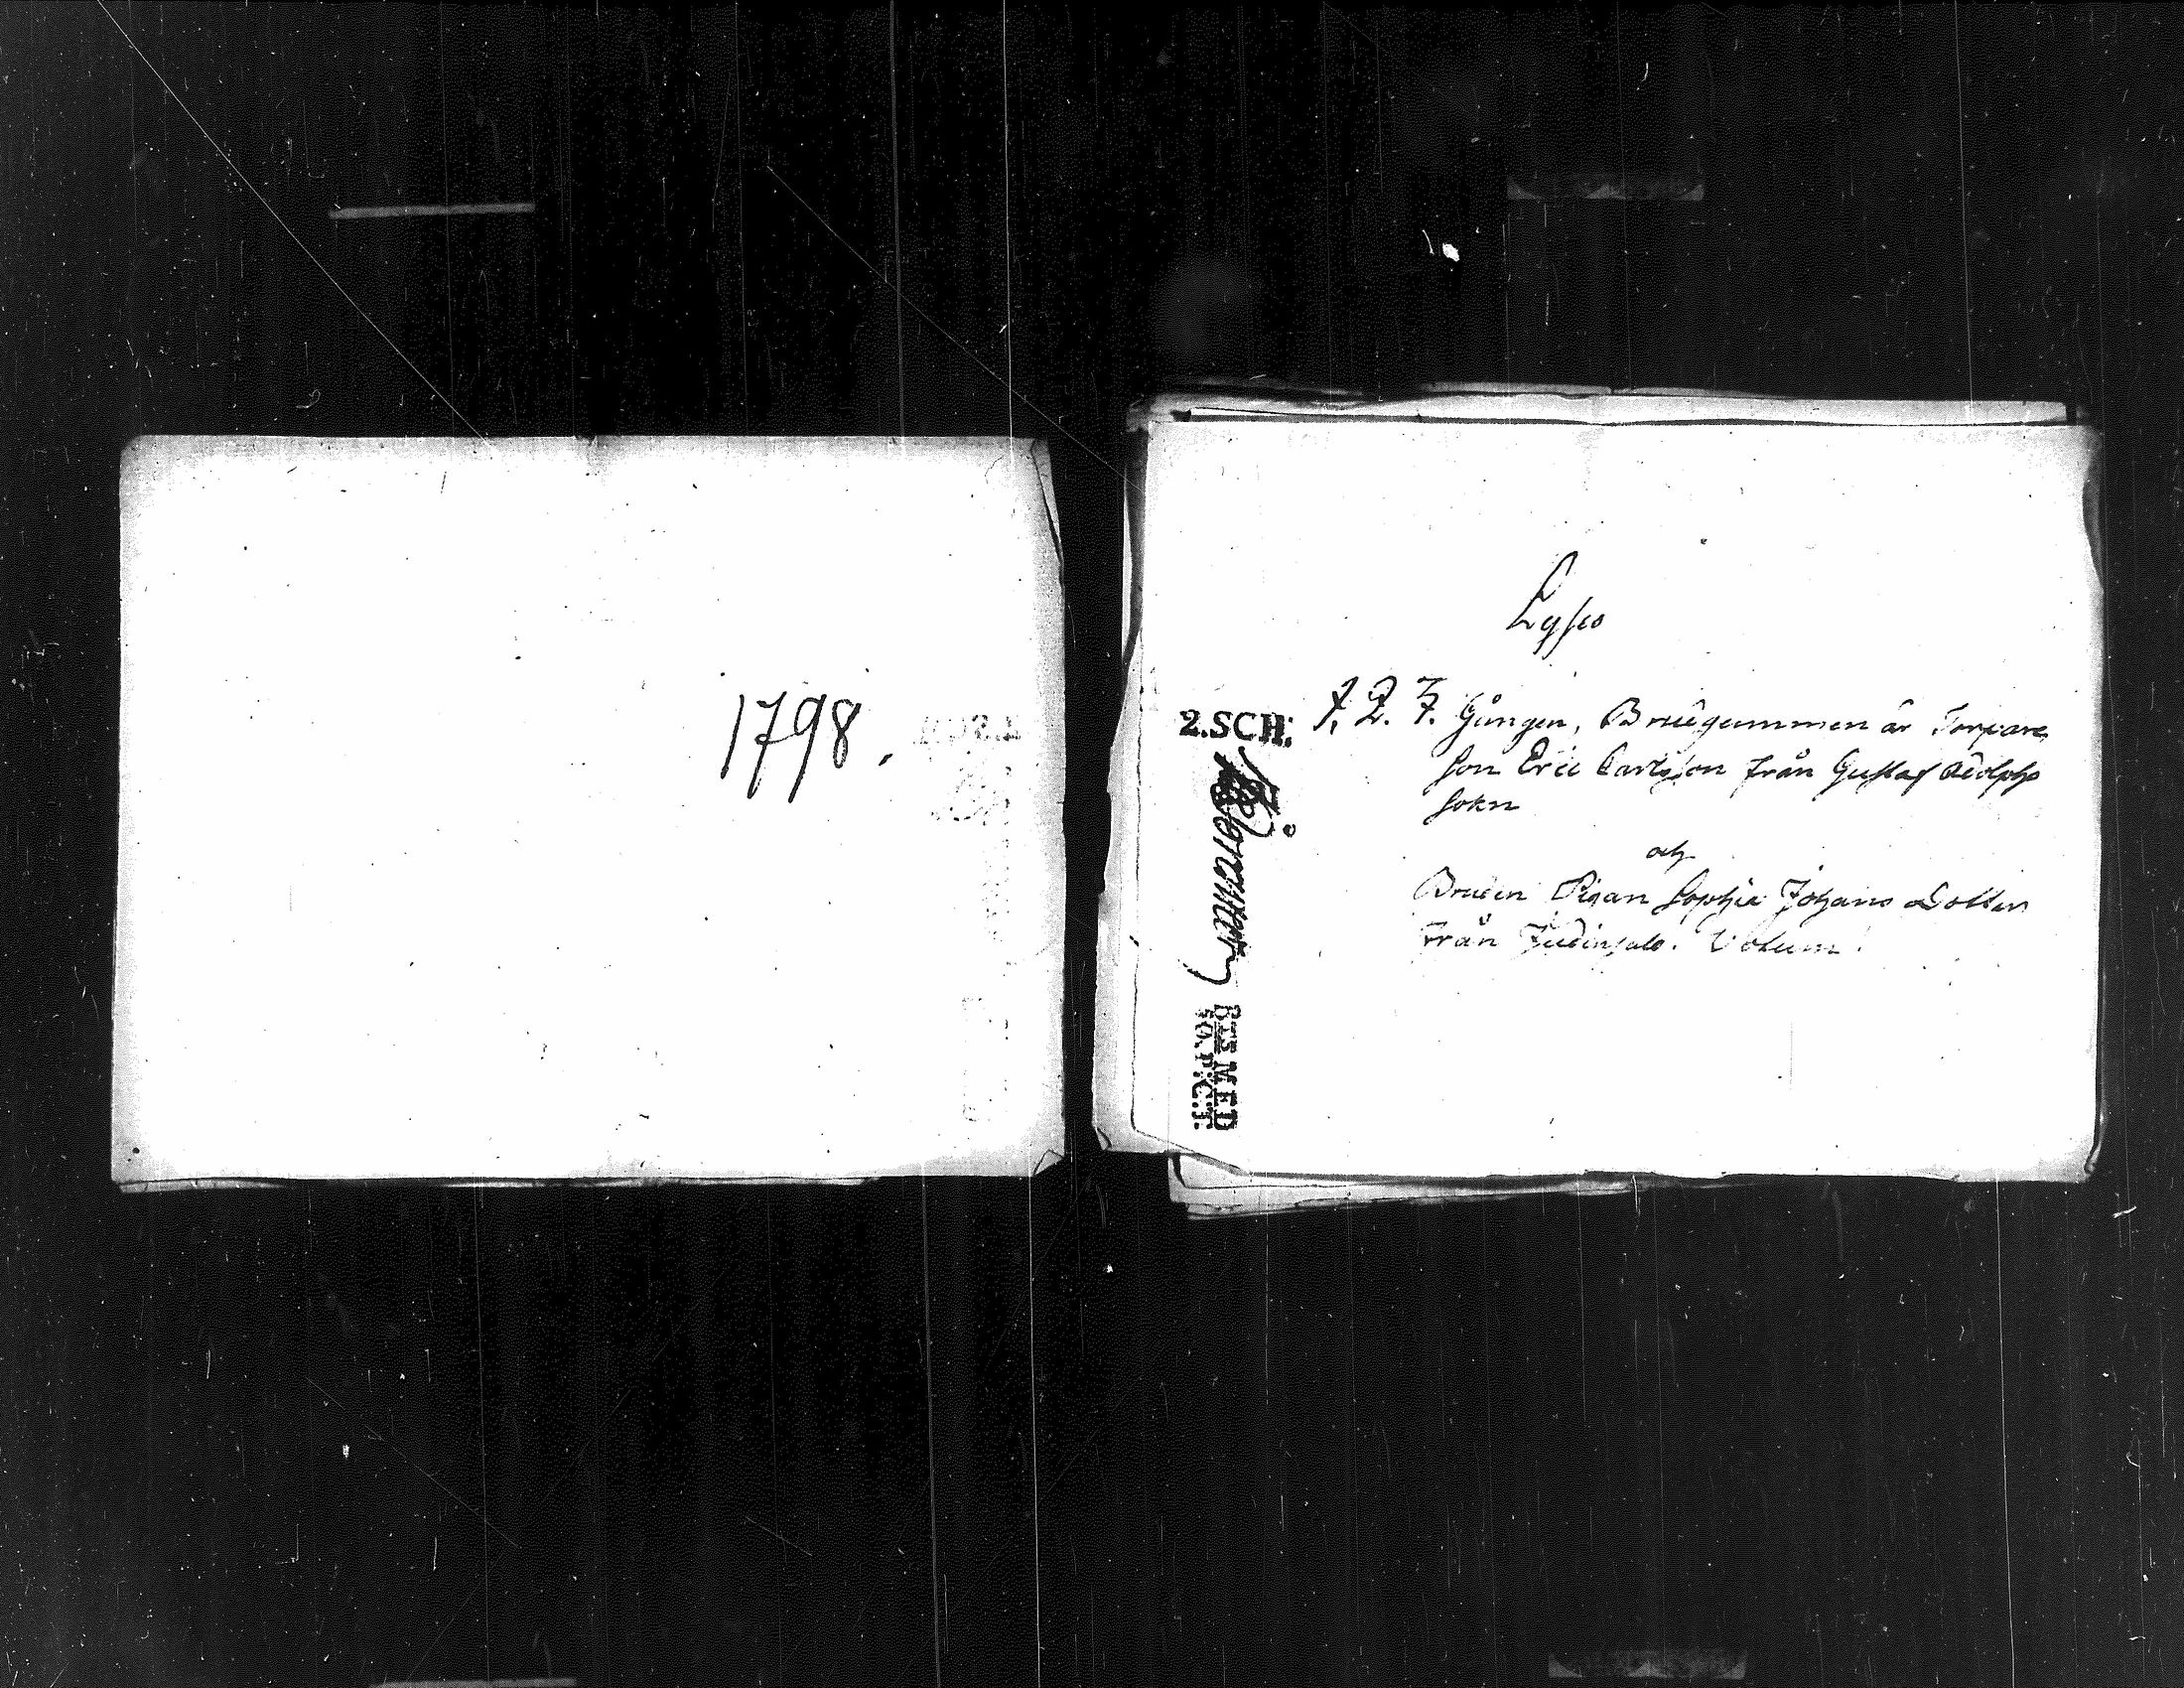 1798.
Lyses
1. 2. 3. Gången, Brudgummen är Torpare
son Eric Carlsson från Gustaf Adolphs
sokn
och
Bruden Pigan Sophia Johans Dotter
från
2.SCH.
MED
50.P:C:T.